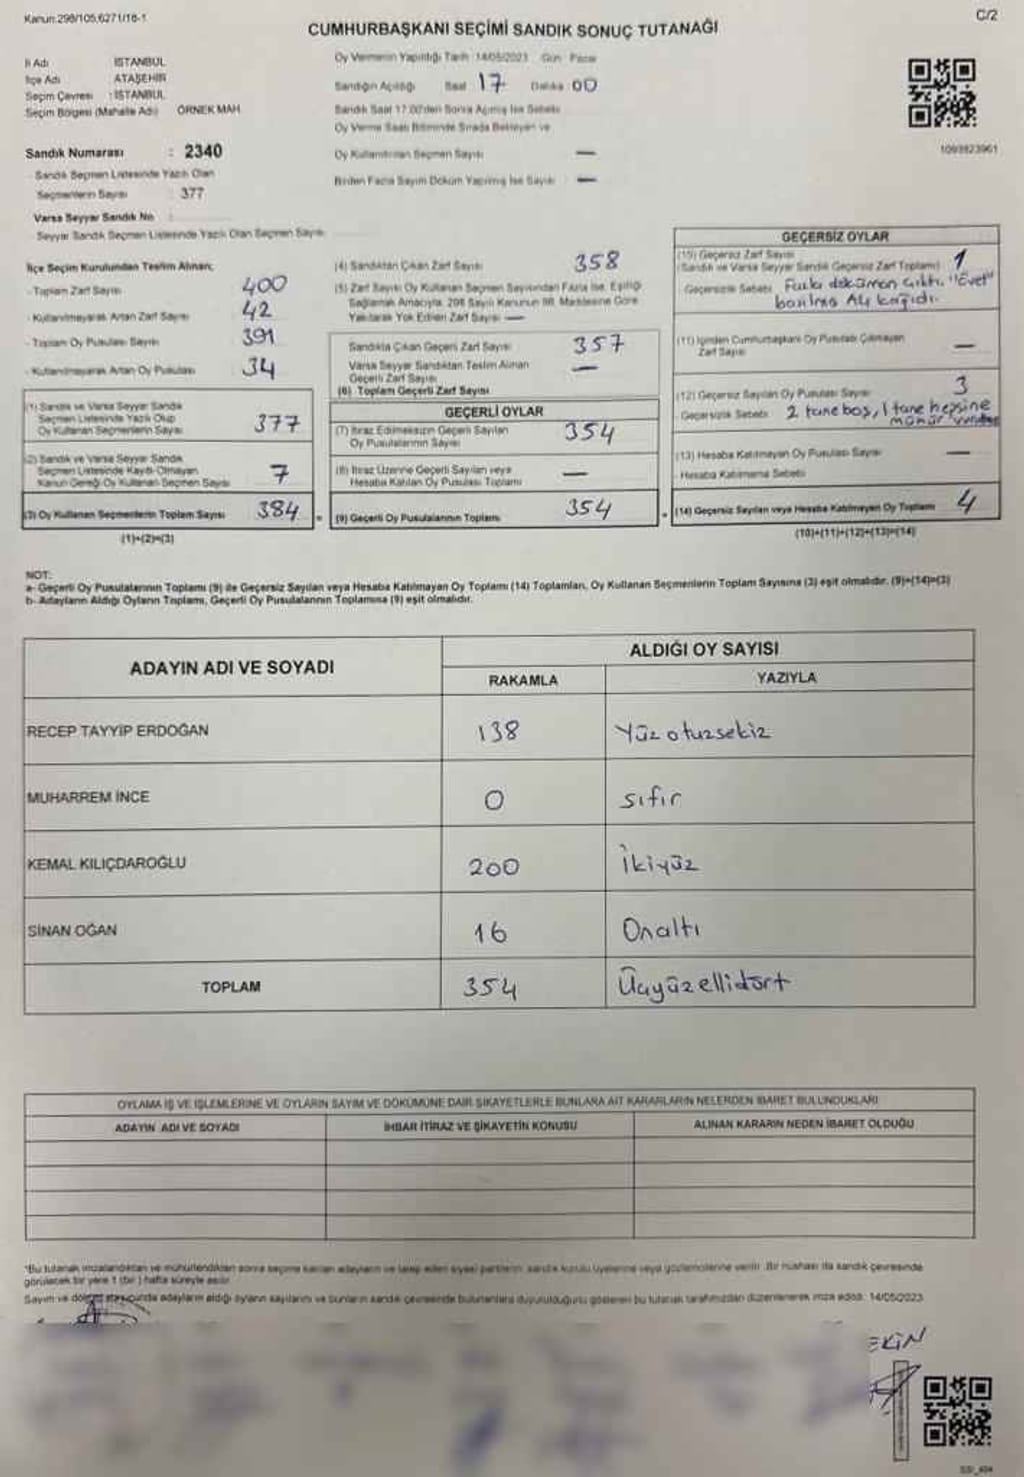 Kanun:298/105,6271/18-1
C/2
CUMHURBAŞKANI SEÇİMİ SANDIK SONUÇ TUTANAĞI
İl Adı İSTANBUL
İlçe Adı ATAŞEHİR
Seçim Çevresi : İSTANBUL
Seçim Bölgesi (Mahalle Adı) ÖRNEK MAH.
Oy Vermenin Yapıldığı Tarih :14/05/2023 Gün : Pazar
Sandığın Açıldığı Saat 17 Dakika : 00
Sandık Saat 17:00'den Sonra Açılmış İse Sebebi
Oy Verme Saati Bitiminde Sırada Bekleyen ve
Oy Kullandırılan Seçmen Sayısı —
Birden Fazla Sayım Döküm Yapılmış İse Sayısı —
1093823961
Sandık Numarası : 2340
Sandık Seçmen Listesinde Yazılı Olan
Seçmenlerin Sayısı : 377
Varsa Seyyar Sandık No :
Seyyar Sandık Seçmen Listesinde Yazılı Olan Seçmen Sayısı
İlçe Seçim Kurulundan Teslim Alınan;
- Toplam Zarf Sayısı 400
- Kullanılmayarak Artan Zarf Sayısı 42
- Toplam Oy Pusulası Sayısı 391
- Kullanılmayarak Artan Oy Pusulası 34
(1) Sandık ve Varsa Seyyar Sandık
Seçmen Listesinde Yazılı Olup
Oy Kullanan Seçmenlerin Sayısı 377
(2) Sandık ve Varsa Seyyar Sandık
Seçmen Listesinde Kayıtlı Olmayan
Kanun Gereği Oy Kullanan Seçmen Sayısı 7
(3) Oy Kullanan Seçmenlerin Toplam Sayısı 384
(1)+(2)=(3)
(4) Sandıktan Çıkan Zarf Sayısı 358
(5) Zarf Sayısı Oy Kullanan Seçmen Sayısından Fazla İse, Eşitliği
Sağlamak Amacıyla, 298 Sayılı Kanunun 98. Maddesine Göre
Yakılarak Yok Edilen Zarf Sayısı —
Sandıkta Çıkan Geçerli Zarf Sayısı 357
Varsa Seyyar Sandıktan Teslim Alınan
Geçerli Zarf Sayısı —
(6) Toplam Geçerli Zarf Sayısı
GEÇERLİ OYLAR
(7) İtiraz Edilmeksizin Geçerli Sayılan
Oy Pusulalarının Sayısı 354
(8) İtiraz Üzerine Geçerli Sayılan veya
Hesaba Katılan Oy Pusulası Toplamı —
(9) Geçerli Oy Pusulalarının Toplamı 354
GEÇERSİZ OYLAR
(10) Geçersiz Zarf Sayısı
(Sandık ve Varsa Seyyar Sandık Geçersiz Zarf Toplamı) 1
Geçersizlik Sebebi Farklı döküman çıktı. "Evet"
basılmış A4 kağıdı.
(11) İçinden Cumhurbaşkanı Oy Pusulası Çıkmayan
Zarf Sayısı —
(12) Geçersiz Sayılan Oy Pusulası Sayısı 3
Geçersizlik Sebebi 2 tane boş, 1 tane hepsine
mühür
(13) Hesaba Katılmayan Oy Pusulası Sayısı —
Hesaba Katılmama Sebebi
(14) Geçersiz Sayılan veya Hesaba Katılmayan Oy Toplamı 4
(10)+(11)+(12)+(13)=(14)
NOT:
a- Geçerli Oy Pusulalarının Toplamı (9) ile Geçersiz Sayılan veya Hesaba Katılmayan Oy Toplamı (14) Toplamları, Oy Kullanan Seçmenlerin Toplam Sayısına (3) eşit olmalıdır. (9)+(14)=(3)
b- Adayların Aldığı Oyların Toplamı, Geçerli Oy Pusulalarının Toplamına (9) eşit olmalıdır.
ADAYIN ADI VE SOYADI ALDIĞI OY SAYISI
RAKAMLA YAZIYLA
RECEP TAYYİP ERDOĞAN 138 Yüz otuzsekiz
MUHARREM İNCE 0 sıfır
KEMAL KILIÇDAROĞLU 200 İkiyüz
SİNAN OĞAN 16 Onaltı
TOPLAM 354 Üçyüzellidört
OYLAMA İŞ VE İŞLEMLERİNE VE OYLARIN SAYIM VE DÖKÜMÜNE DAİR ŞİKAYETLERLE BUNLARA AİT KARARLARIN NELERDEN İBARET BULUNDUKLARI
ADAYIN ADI VE SOYADI İHBAR İTİRAZ VE ŞİKAYETİN KONUSU ALINAN KARARIN NEDEN İBARET OLDUĞU
*Bu tutanak imzalandıktan ve mühürlendikten sonra seçime katılan adayların ve talep eden siyasi partilerin, sandık kurulu üyelerine veya gözlemcilerine verilir. Bir nüshası da sandık çevresinde
görülecek bir yere 1 (bir) hafta süreyle asılır.
Sayım ve döküm sonucunda adayların aldığı oyların sayılarını ve bunların sandık çevresinde bulunanlara duyurulduğunu gösteren bu tutanak tarafımızdan düzenlenerek imza edildi. 14/05/2023
EKİN